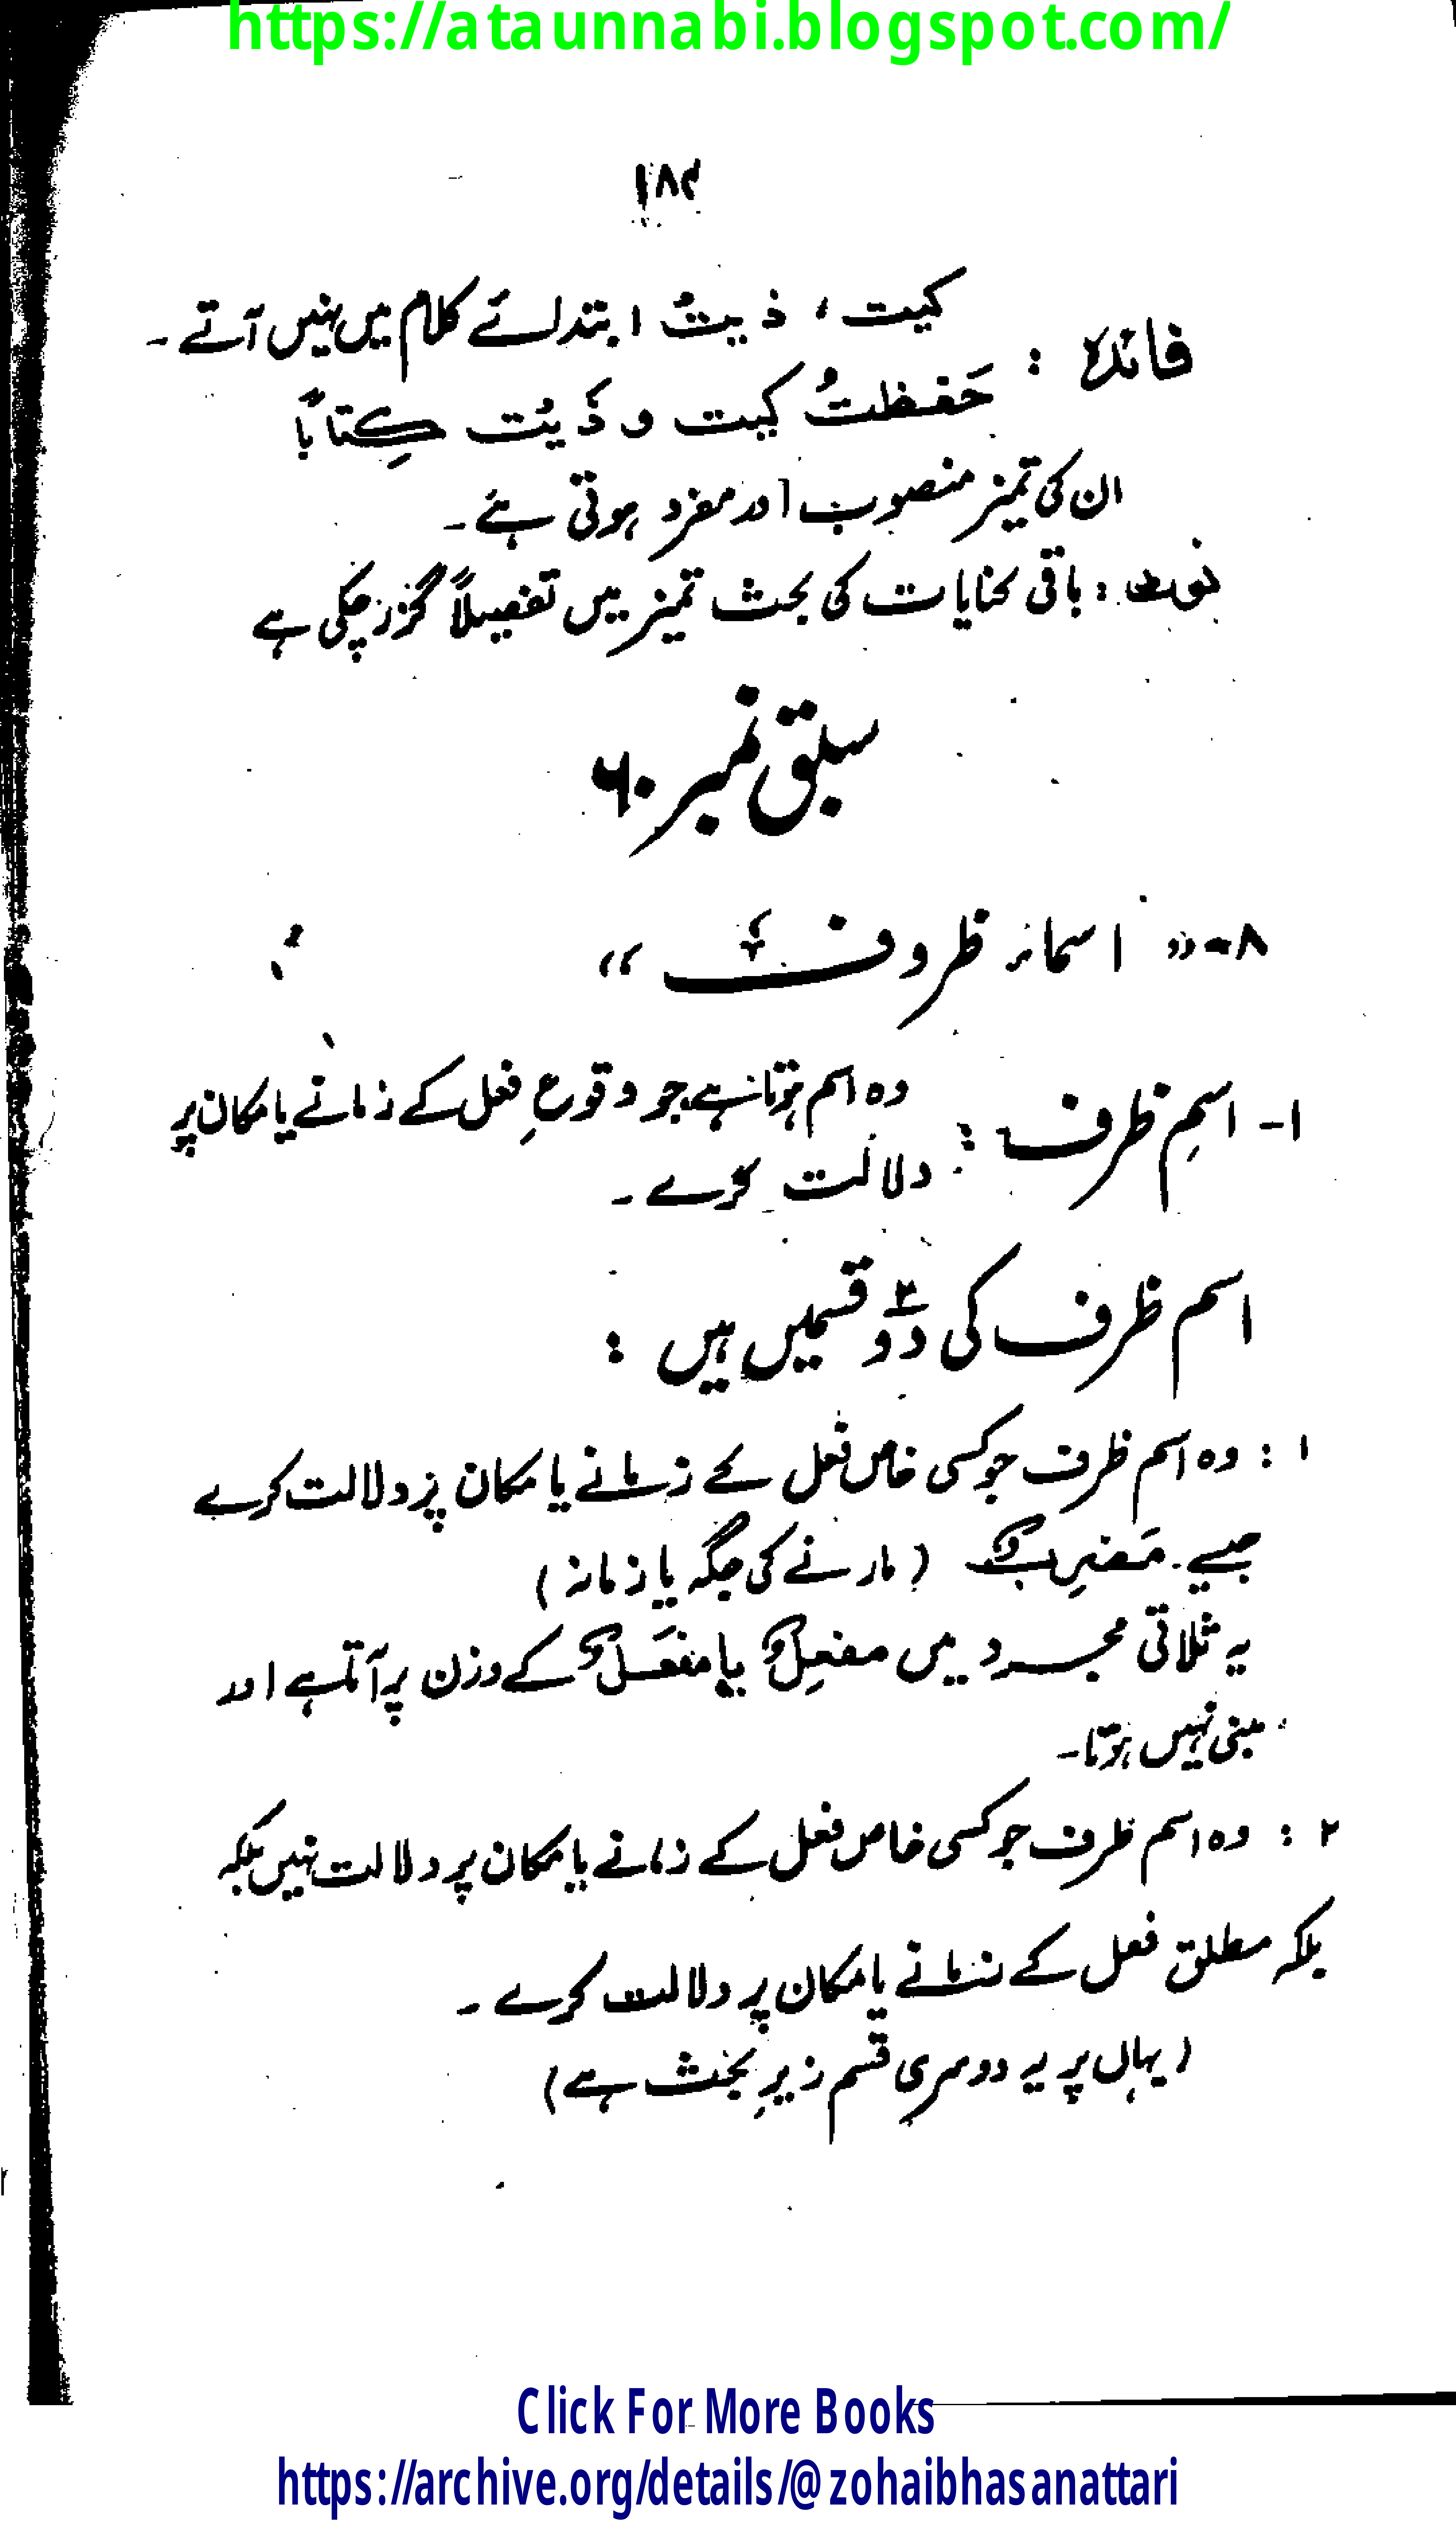 https://ataunnabi.blogspot.com/
۱۸۴
فائدہ : کیت ، ذیتُ ابتدائے کلام میں نہیں آتے ۔
حَفظتُ کیت و ذَیْت کِتابًا
ان کی تمیز منصوب اور مفرد ہوتی ہے ۔
نوٹ : باقی کنایات کی بحث تمیز میں تفصیلاً گزر چکی ہے
سبق نمبر ۶۰
۸- " اسماء ظروف "
۱- اسمِ ظرف : وہ اسم ہوتا ہے جو وقوعِ فعل کے زمانے یا مکان پر
دلالت کرے ۔
اسم ظرف کی دو۲ قسمیں ہیں :
۱ : وہ اسم ظرف جو کسی خاص فعل کے زمانے یا مکان پر دلالت کرے
جیسے ۔ مَضرِبٌ ( مارنے کی جگہ یا زمانہ )
یہ ثلاثی مجرد میں مفعِلٌ یا مفعَلٌ کے وزن پر آتا ہے اور
مبنی نہیں ہوتا ۔
۲ : وہ اسم ظرف جو کسی خاص فعل کے زمانے یا مکان پر دلالت نہیں بلکہ
بلکہ مطلق فعل کے زمانے یا مکان پر دلالت کرے ۔
( یہاں پر یہ دوسری قسم زیرِ بحث ہے )
Click For More Books
https://archive.org/details/@zohaibhasanattari